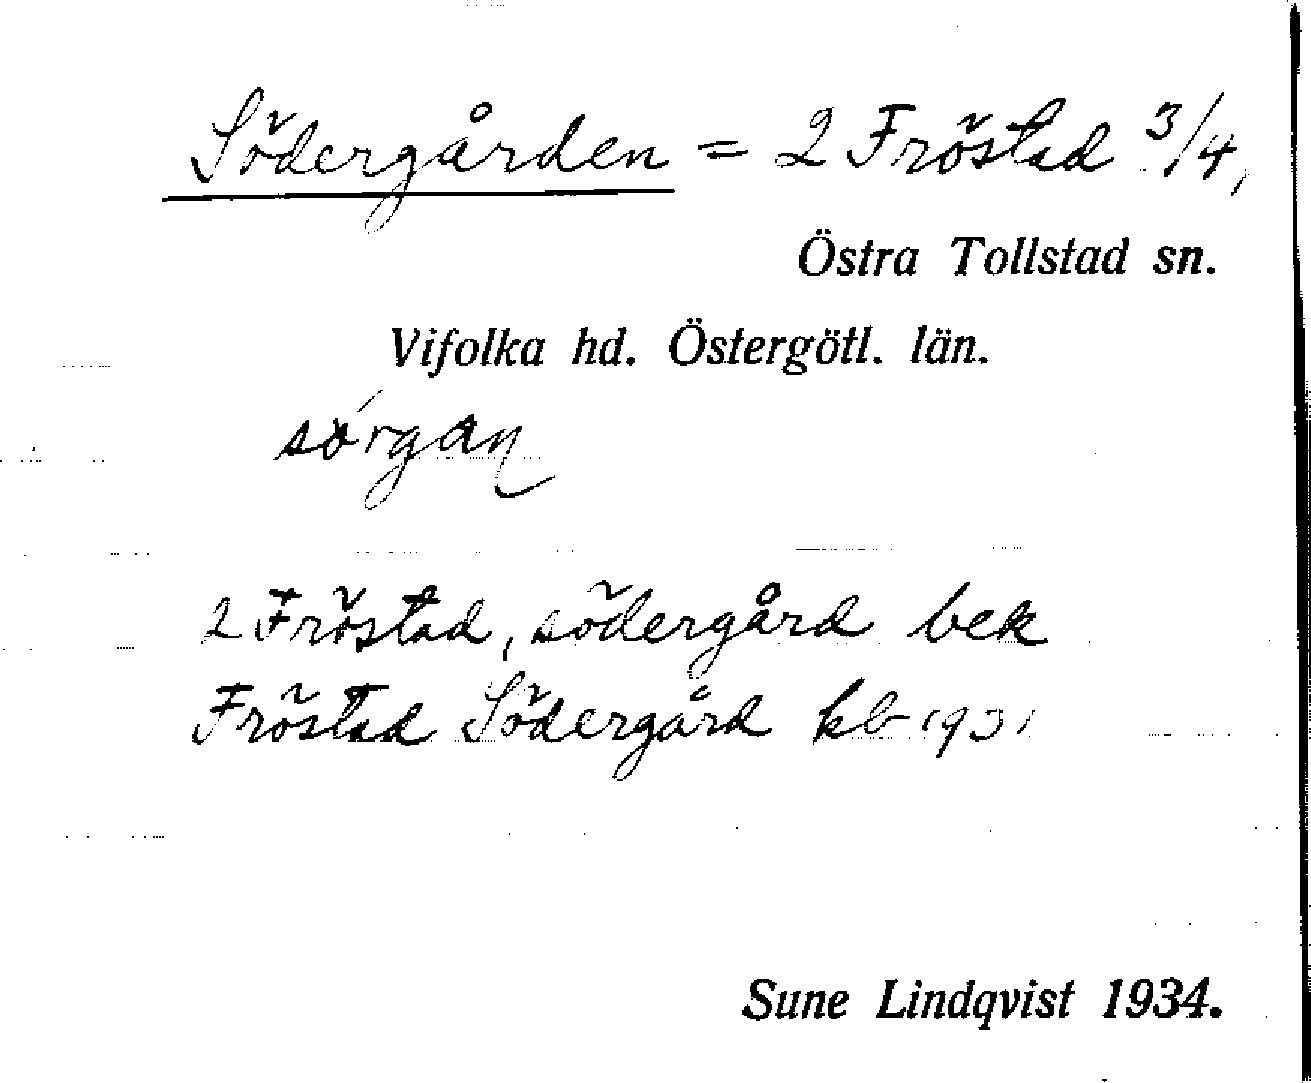 Södergården = 2 Fröstad 3/4,
Östra Tollstad sn.
Vifolka hd. Östergötl. län.
sórgaɳ
2 Fröstad, södergård bek
Fröstad Södergård kb 1931
Sune Lindqvist 1934.